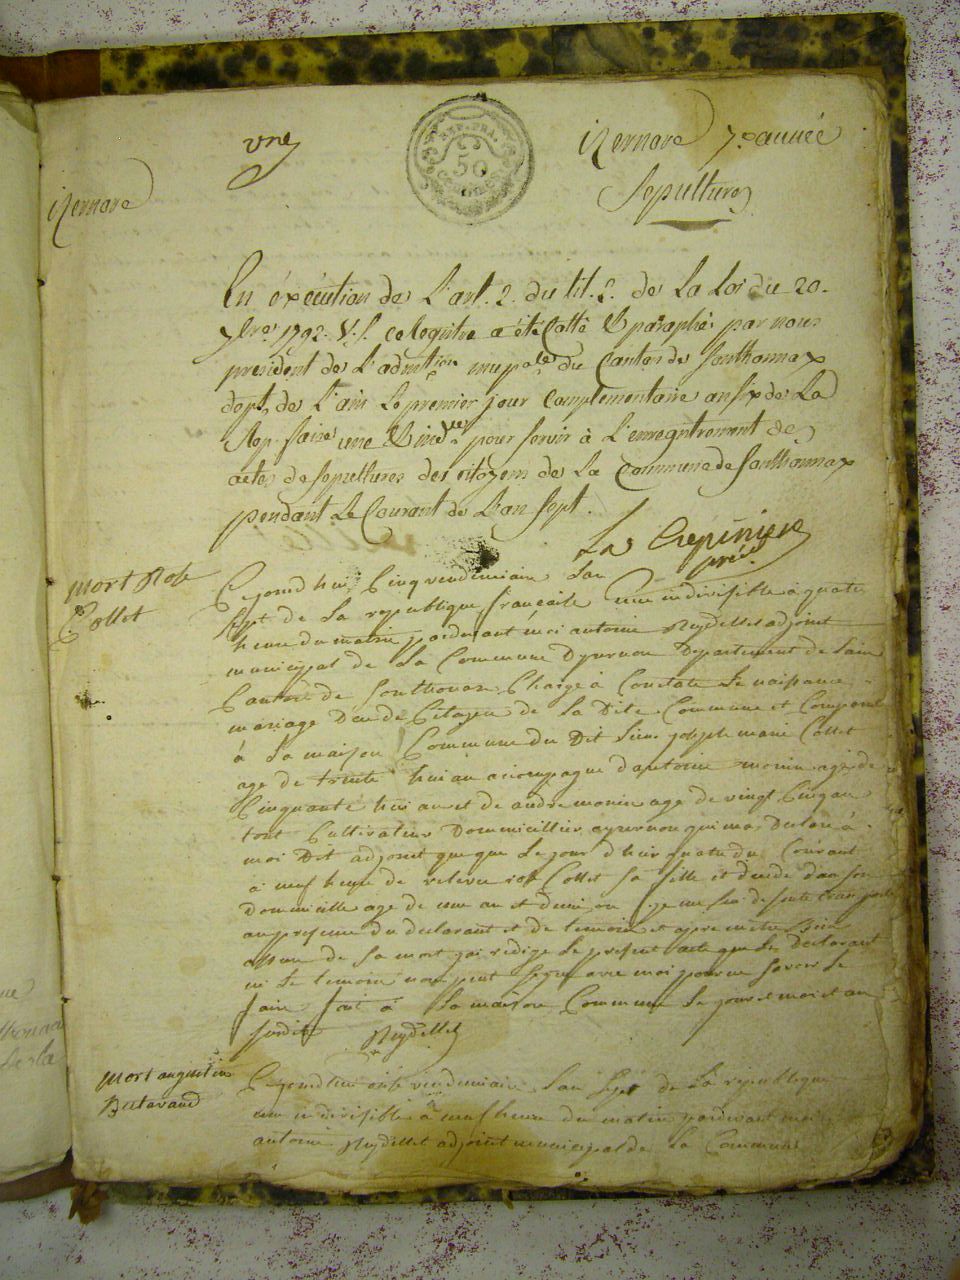 une
REP. FRA.
50
Izernore 7.e année
Sépultures
Izernore
En éxécution de L'art. 2. du tit. 2. de La Loi du 20.
7bre 1792. V.S. ce Registre a été Cotté & paraphé par nous
president de L'admtion mupale du Canton de Sonthonnax
dept de L'ain Le premier jour Complementaire an six de La
Rep. faise une & indve pour servir à L'enregistrement des
actes de sepultures des citoyens de La Commune de Sonthonnax
pendant Le Courant de L'an sept.
La Crepinière
prést
mort Rose
Collet
Cejourd'hui Cinq vendemiaire L'an
sept de La republique française une indivisible a quatre
heure du matin pardevant moi antoine Reydellet adjoint
municipal de La Commune Departement de Lain
Canton de Sonthonax Chargé à Constater Le naissance
mariage Decede Citoyen de La Dite Commune et Comparu
à La maison Commune du Dit Lieu joseph marie Collet
age de trente hui an accompagne d'antoine monin age de
Cinquante hui an et de andre monin age de vingt Cinq an
tout Cultivateur Domicillier qui ma Declaré à
moi Dit adjoint que que Le jour d'hier quatre du Courant
a neuf heure de relevee rose Collet sa fille et decede dan son
domicille age de une an et demi je me sui de suite transporte
au presence du declarant et de temoins et apre mêtre bien
assure de sa mort jai redige Le present acte que Le declarant
ni Le temoins non peut signe avec moi pour ne savoir Le
faire fait à La maison Commune Le jour et moi et an
susdit Reydellet
mort augustin
Cejourd'hui onse vendemiaire L'an sept de La republique
une indivisible à neuf heure du matin pardevant moi
antoine Reydellet adjoint municipal de La Commune